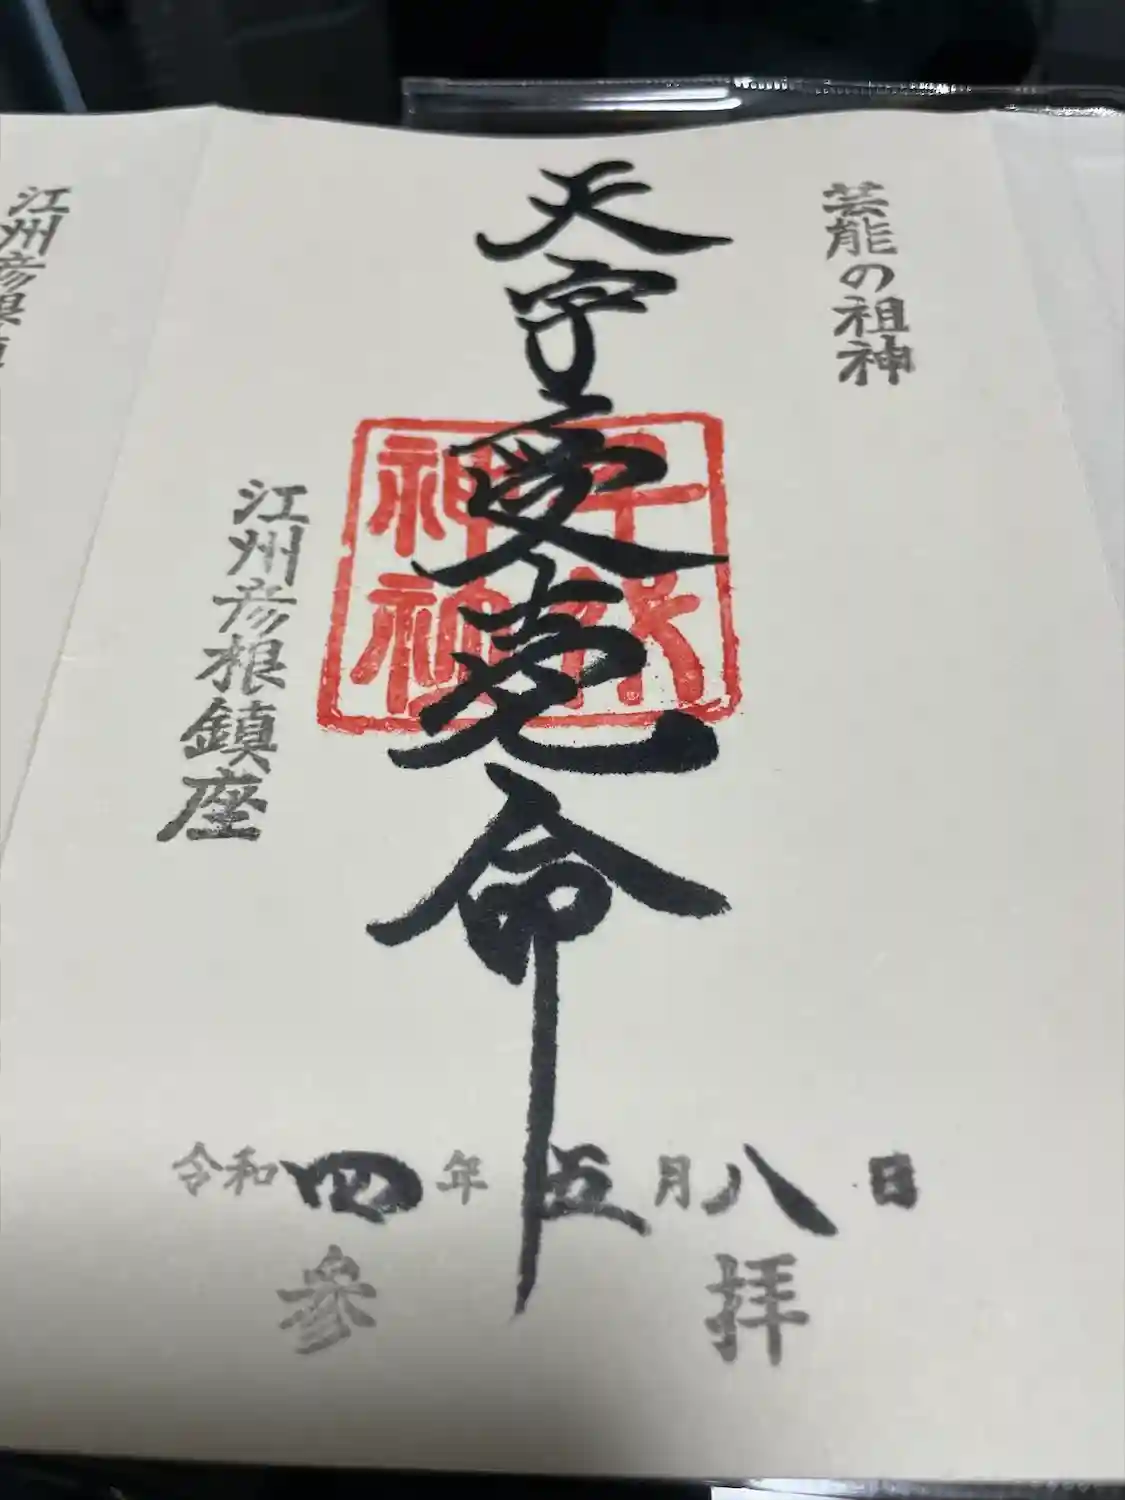 芸能の祖神
天宇受売命
千代神社
江州彦根鎮座
令和四年五月八日
参拝
江州彦根